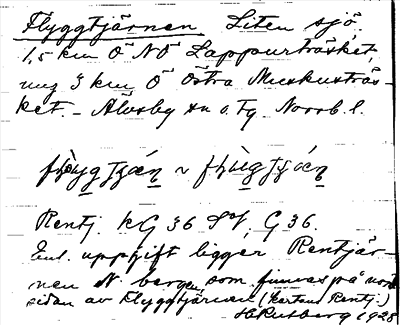 Flyggtjärnen. Liten sjö,
1,5 km Ö NÖ Lappurträsket,
ung 3 km Ö Östra Muskusträs-
ket. - Älvsby sn o. tg. Norrb. l.
Rentj. KG 36 SV, G 36.
Enl. uppgift ligger Rentjär-
nen N. bergen som finnas på norr
sidan av Flyggtjärnen (kartans Rentj.)
H Rutberg 1928